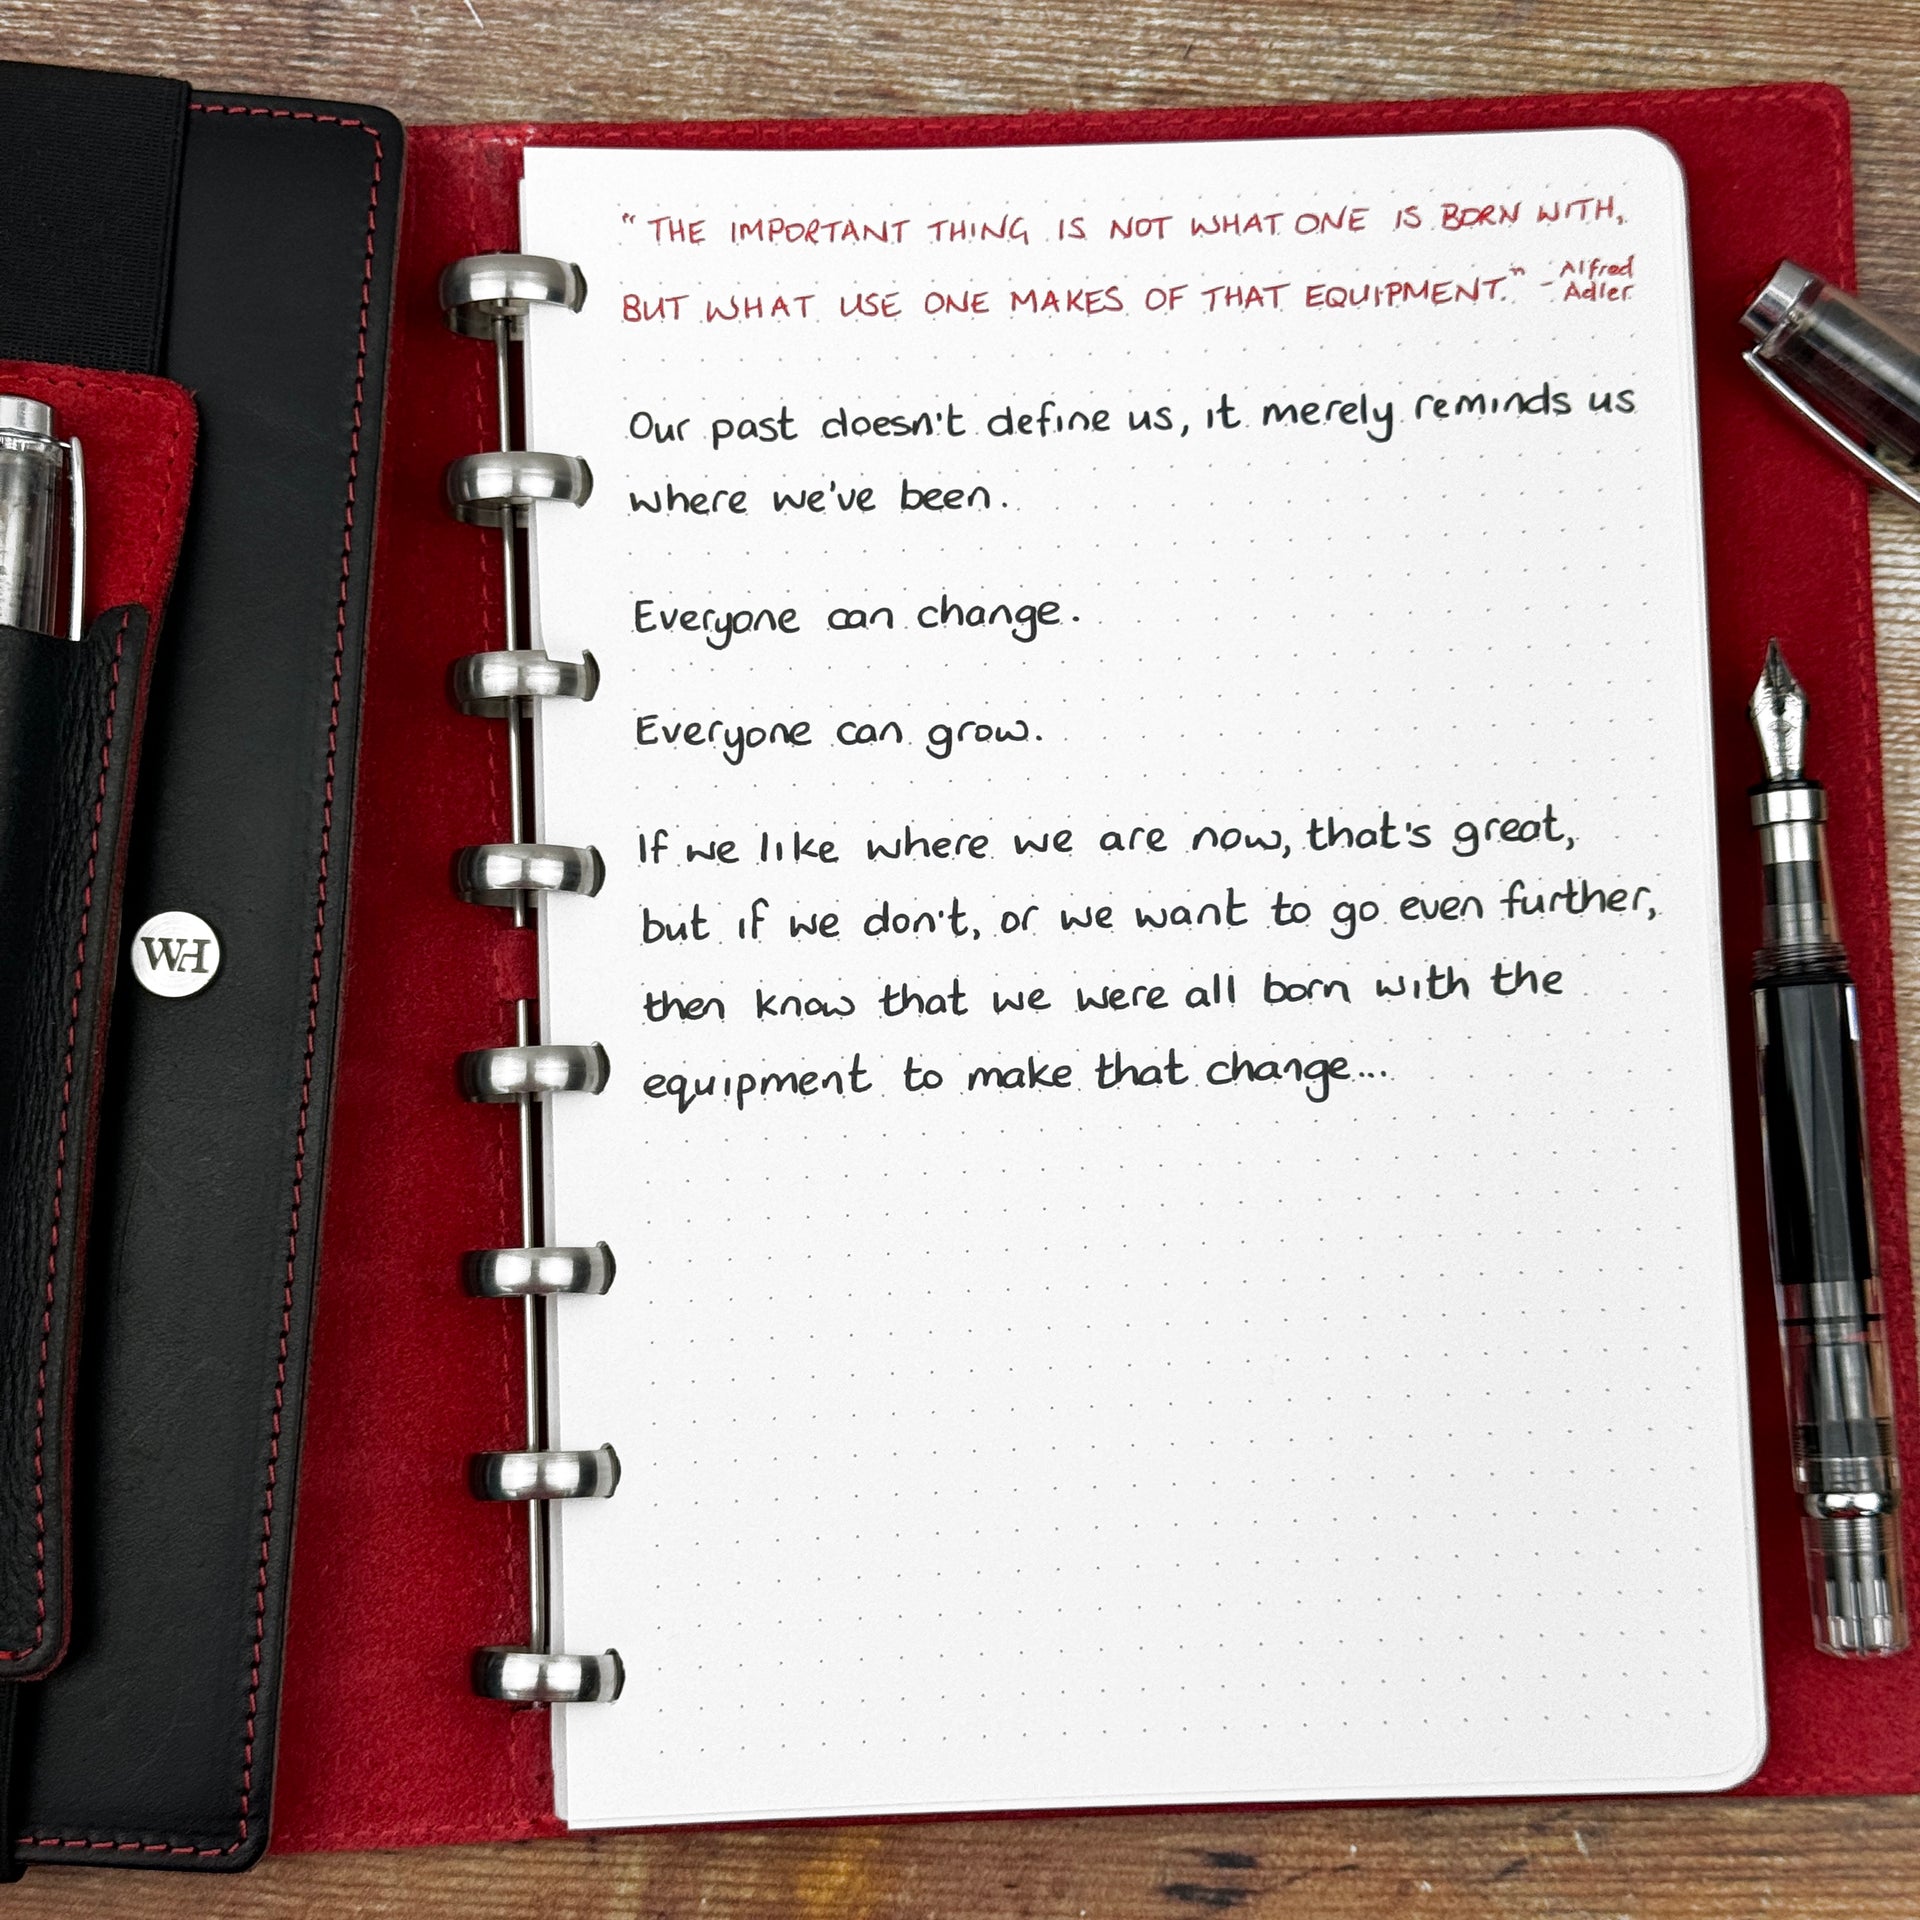 "THE IMPORTANT THING IS NOT WHAT ONE IS BORN WITH,
BUT WHAT USE ONE MAKES OF THAT EQUIPMENT." - Alfred Adler
Our past doesn't define us, it merely reminds us
where we've been.
Everyone can change.
Everyone can grow.
If we like where we are now, that's great,
but if we don't, or we want to go even further,
then know that we were all born with the
equipment to make that change...
WH